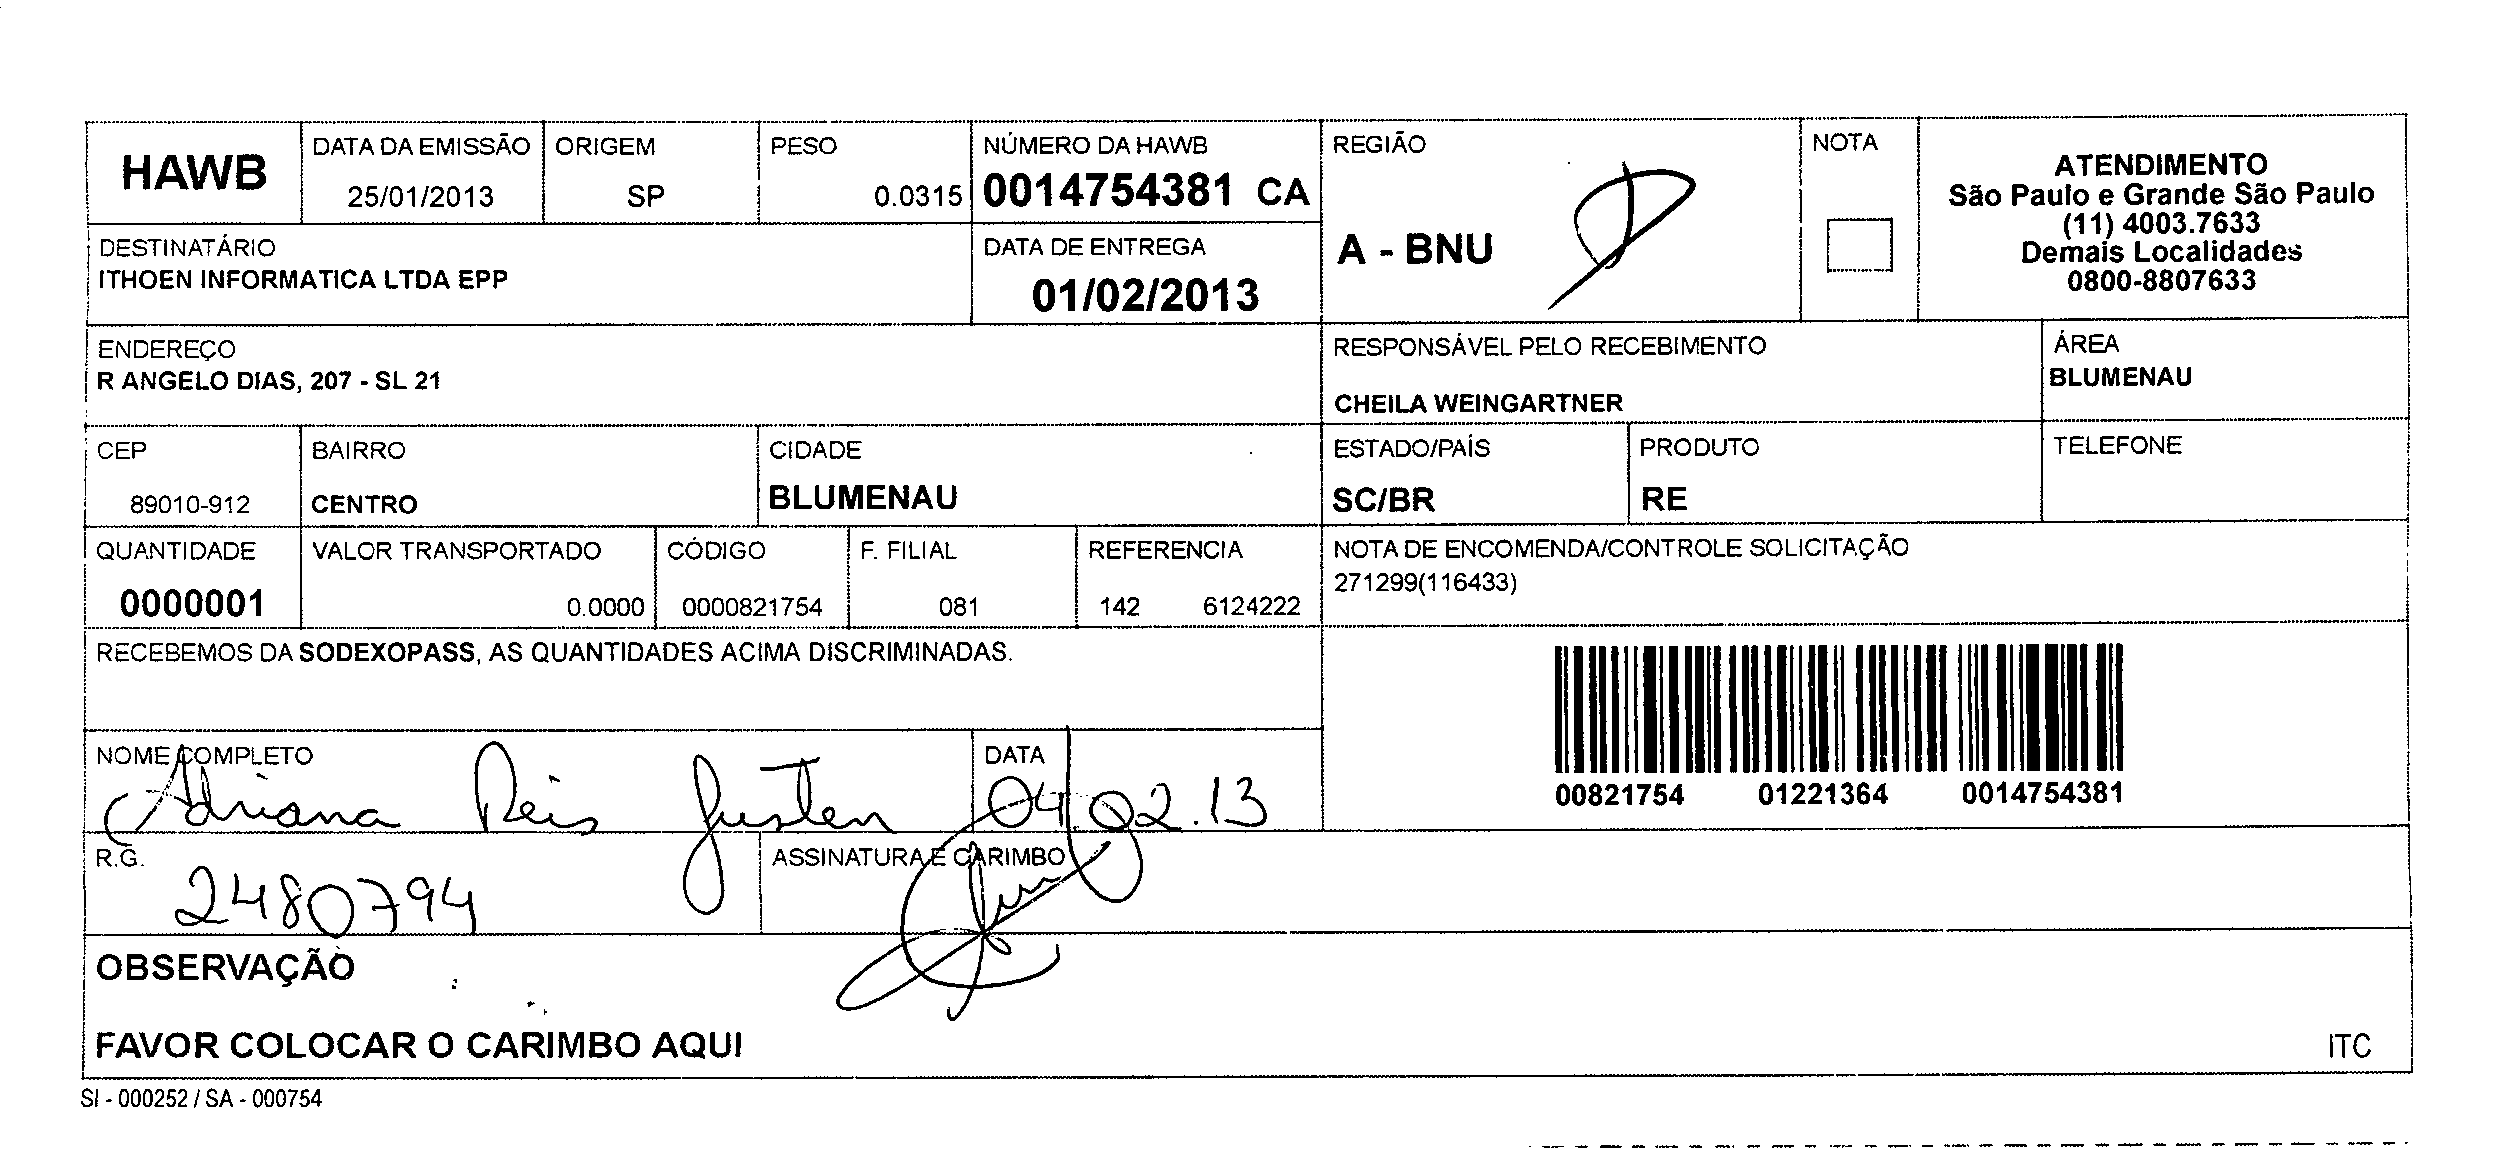 HAWB
DATA DA EMISSÃO
25/01/2013
ORIGEM
SP
PESO
0.0315
NÚMERO DA HAWB
0014754381 CA
REGIÃO
A - BNU
NOTA
ATENDIMENTO
São Paulo e Grande São Paulo
(11) 4003.7633
Demais Localidades
0800-8807633
DESTINATÁRIO
ITHOEN INFORMATICA LTDA EPP
DATA DE ENTREGA
01/02/2013
ENDEREÇO
R ANGELO DIAS, 207 - SL 21
RESPONSÁVEL PELO RECEBIMENTO
CHEILA WEINGARTNER
ÁREA
BLUMENAU
CEP
89010-912
BAIRRO
CENTRO
CIDADE
BLUMENAU
ESTADO/PAÍS
SC/BR
PRODUTO
RE
TELEFONE
QUANTIDADE
0000001
VALOR TRANSPORTADO
0.0000
CÓDIGO
0000821754
F. FILIAL
081
REFERENCIA
142 6124222
NOTA DE ENCOMENDA/CONTROLE SOLICITAÇÃO
271299(116433)
RECEBEMOS DA SODEXOPASS, AS QUANTIDADES ACIMA DISCRIMINADAS.
00821754 01221364 0014754381
NOME COMPLETO
Adriana Reis Justen
DATA
04.02.13
R.G.
2480794
ASSINATURA E CARIMBO
OBSERVAÇÃO
FAVOR COLOCAR O CARIMBO AQUI
ITC
SI - 000252 / SA - 000754